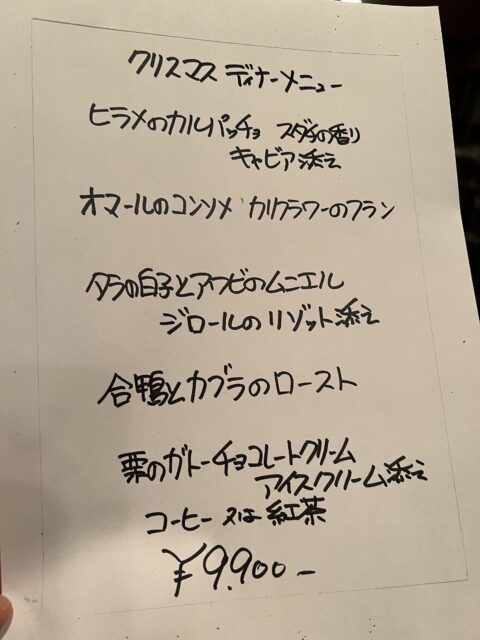 クリスマス ディナーメニュー
ヒラメのカルパッチョ スダチの香り
キャビア添え
オマールのコンソメ カリフラワーのフラン
タラの白子とアワビのムニエル
ジロールのリゾット添え
合鴨とカブラのロースト
栗のガトーチョコレートクリーム
アイスクリーム添え
コーヒー 又は 紅茶
¥9.900-